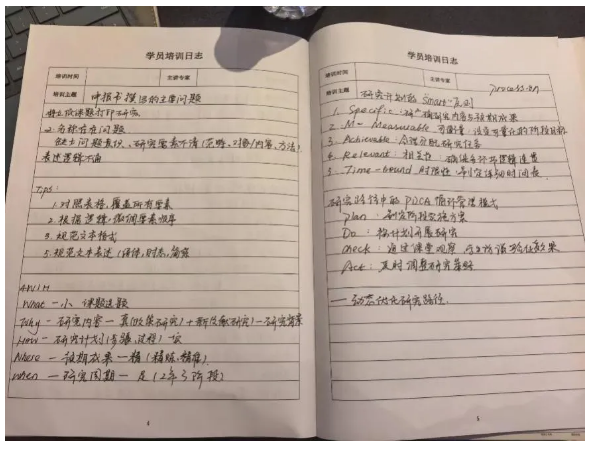 学员培训日志
培训时间
主讲专家
培训主题 申报书撰写的主要问题
2. 名称存在问题
缺乏问题意识、研究要素不清(范畴、对象/内容、方法)
表述逻辑不通
Tips:
1. 对照表格,覆盖所有要素
2. 根据逻辑,微调要素顺序
3. 规范文本格式
5. 规范文本表达(语体,时态,简练
4W1H
What — 小 课题选题
Why — 研究内容 — 真 — 研究背景
How — 研究计划(步骤,过程) — 实
Where — 预期成果 — 精(精炼,精准)
when — 研究周期 — 足(2年3阶段)
4
学员培训日志
培训时间
主讲专家
process-on
培训主题 研究计划的 Smart 原则
1. Specific: 研究内容与预期成果
2. M- Measurable 可衡量: 设定可量化的阶段目标
3. Achievable: 合理分配研究任务
4. Relevant: 相关性: 确保各环逻辑连贯
5. Time-bound 时限性: 制定详细时间表
研究路径中的 PDCA 循环管理模式
plan: 制定阶段实施方案
Do: 按计划开展研究
check: 通过课堂观察、验证效果
Act: 及时调整研究策略
— 动态优化研究路径.
5